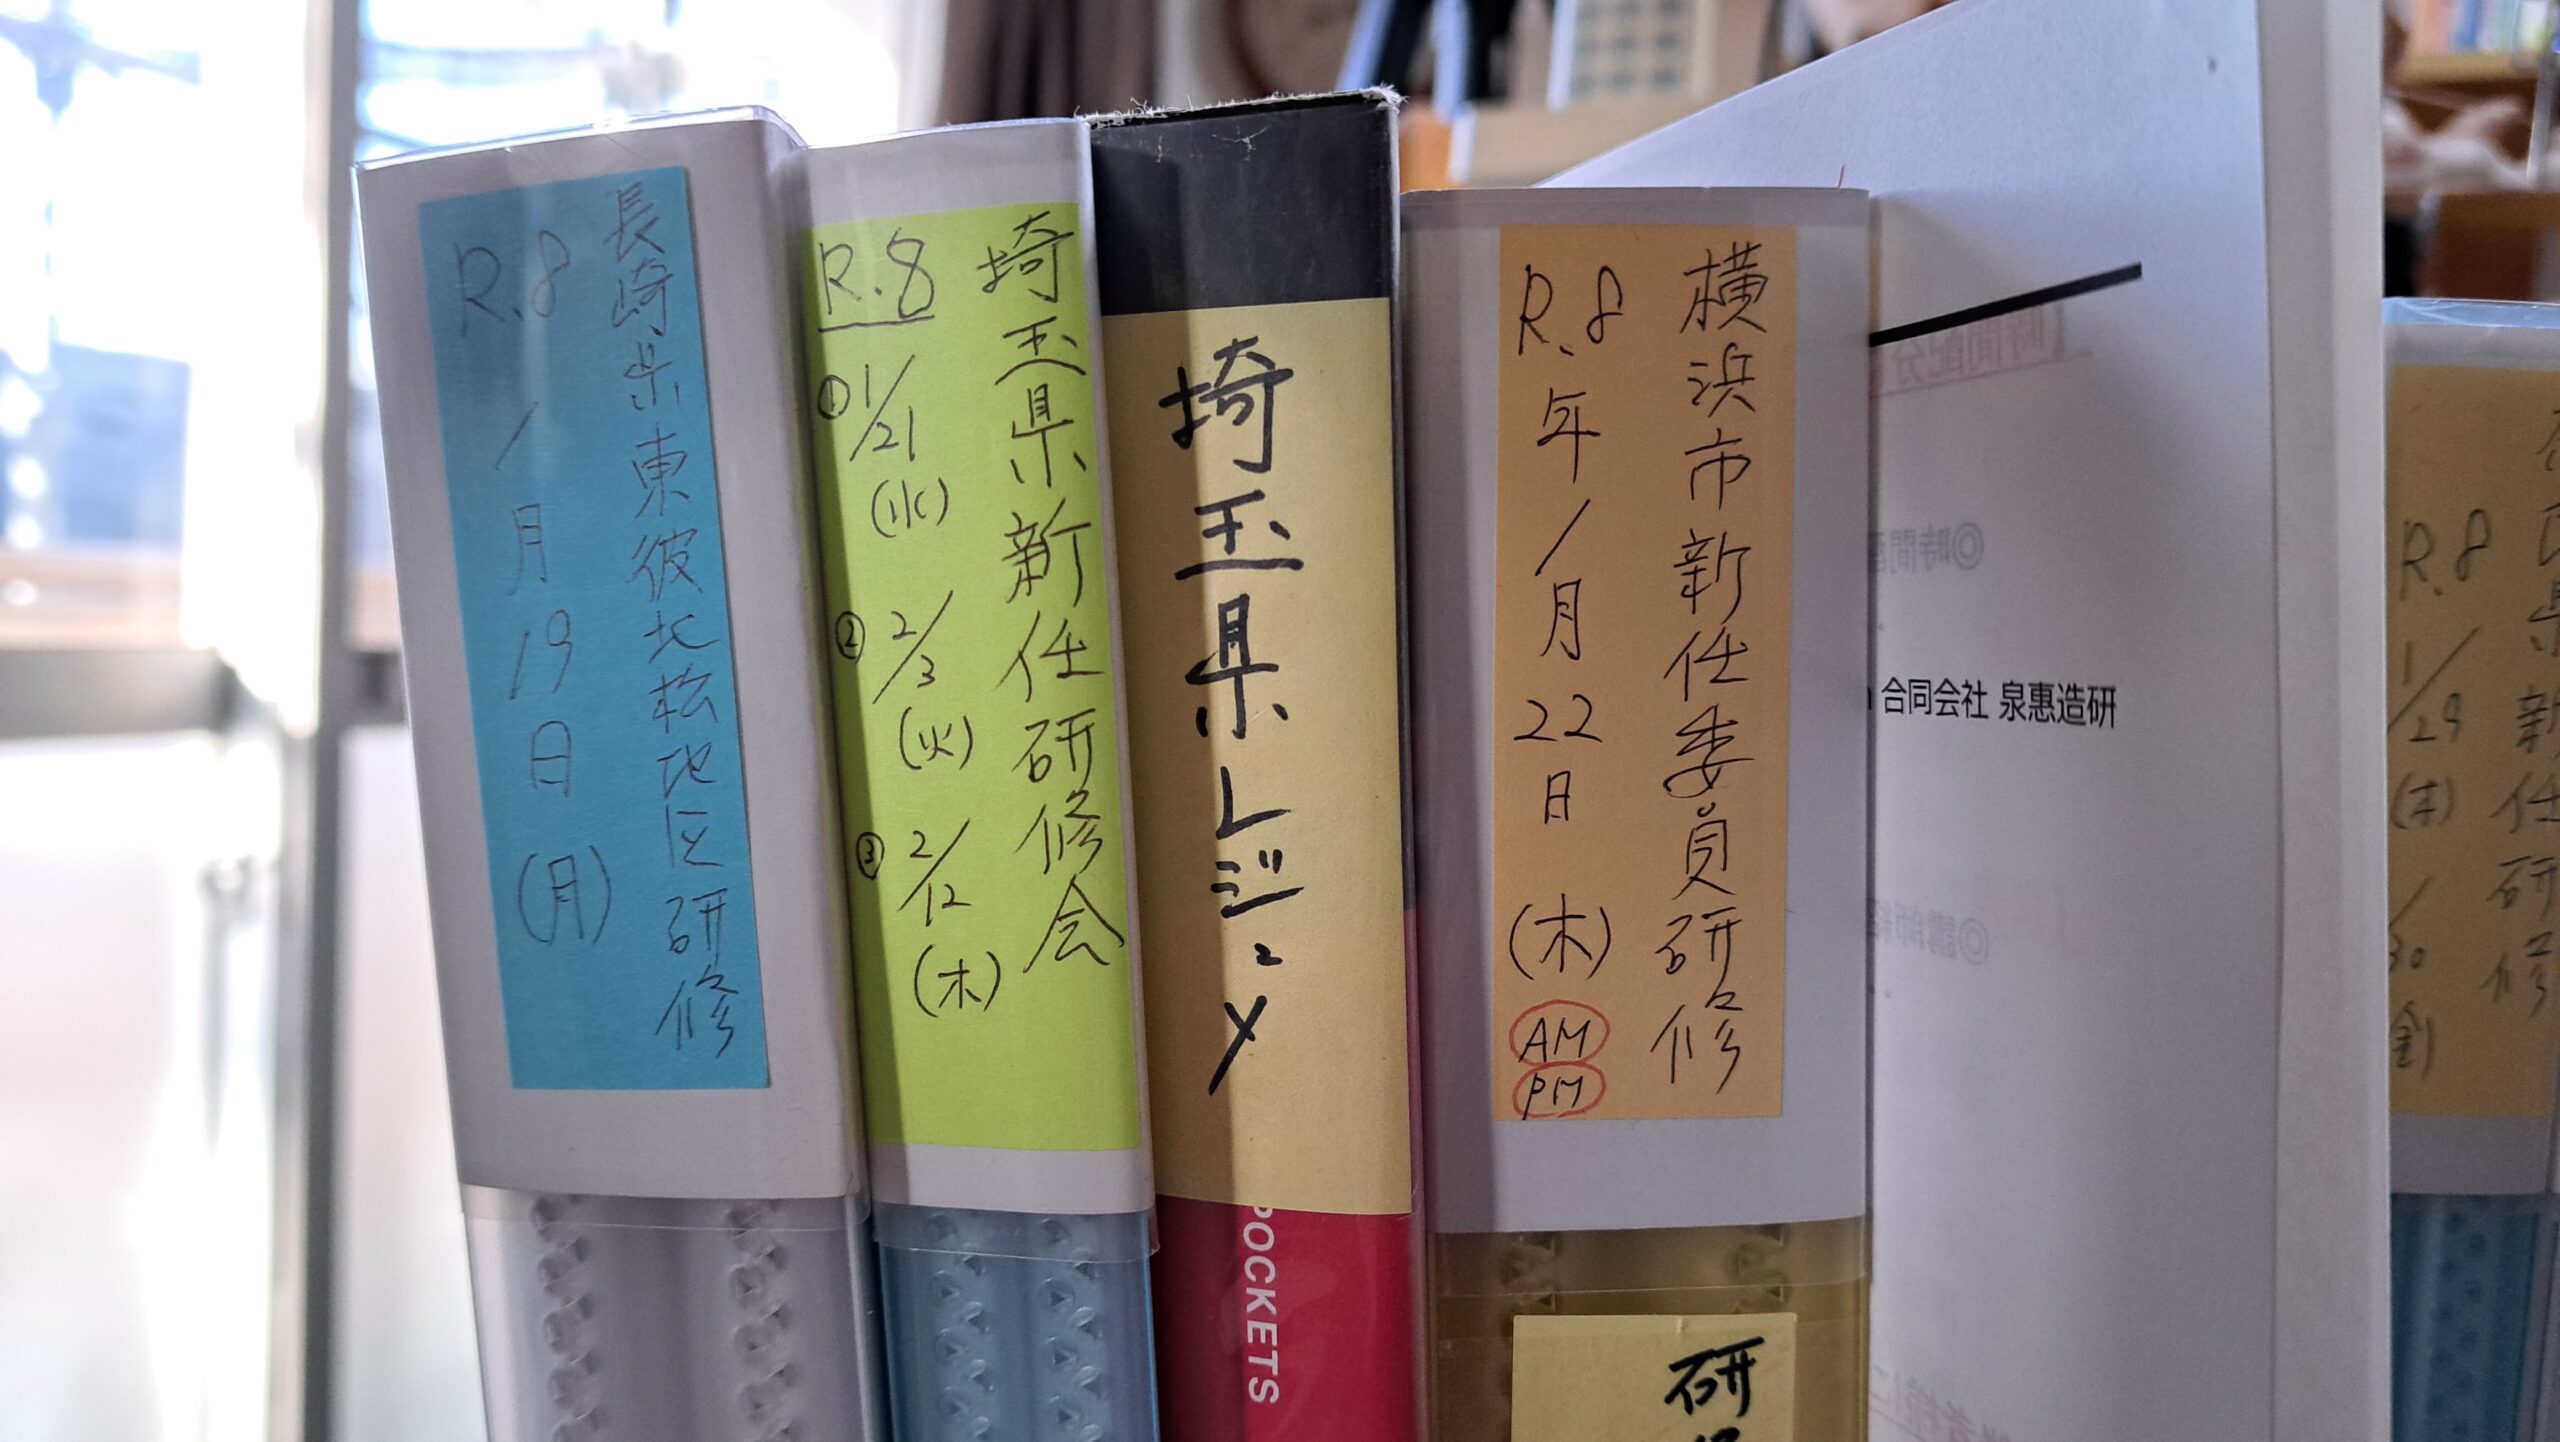 長崎県東彼北松地区研修
R.8 1月19日(月)
埼玉県新任研修会
R.8
①1/21(水)
②2/3(火)
③2/12(木)
埼玉県レジュメ
POCKETS
横浜市新任委員研修
R.8年1月22日(木)
AM
PM
研
合同会社 泉惠造研
県新任研修
R.8
1/29(木)
/30